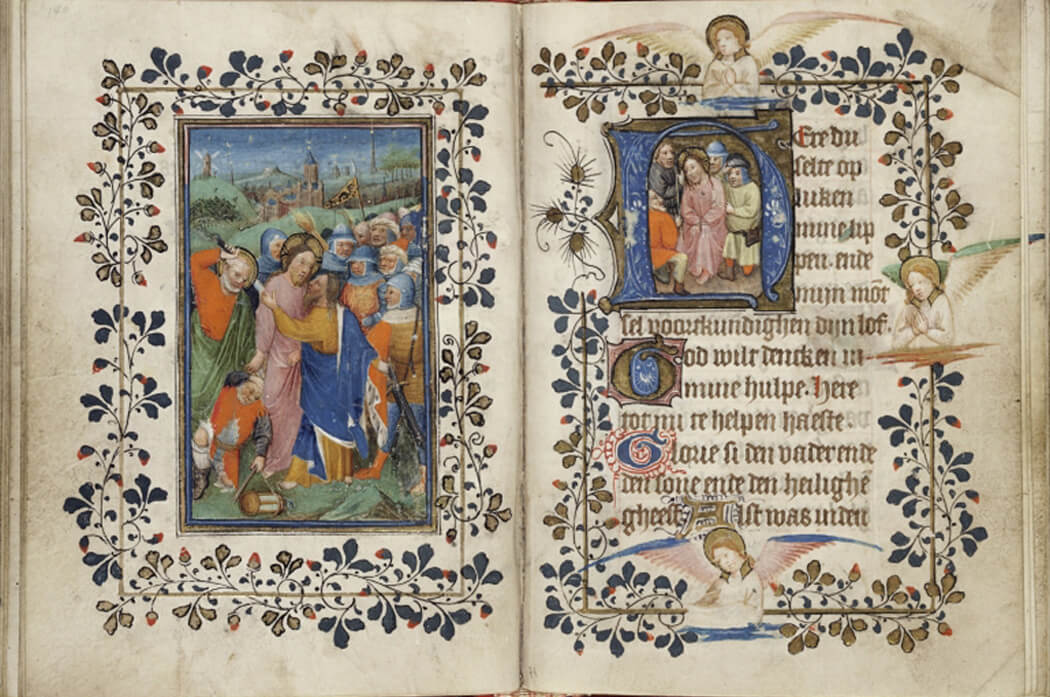 HEre du
selte op
luken
mine lip
pen. ende
mijn mōt
sel voortkundighen dijn lof.
God wilt dencken in
mine hulpe. Here
tot mi te helpen haeste.
Glorie si den vader ende
den sone ende den heilighē
gheest Alst was in den